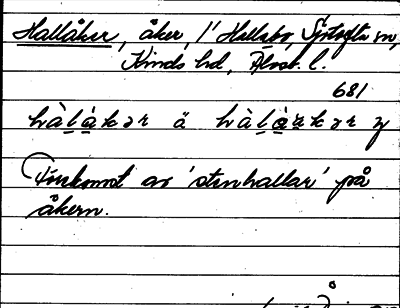 Hallåker, åker, i Hallabo, Sjötofta sn,
Kinds hd, Älvsb. l.
681
hàlàkər å hàlàrkər y
Förekomst av 'stenhallar' på
åkern.